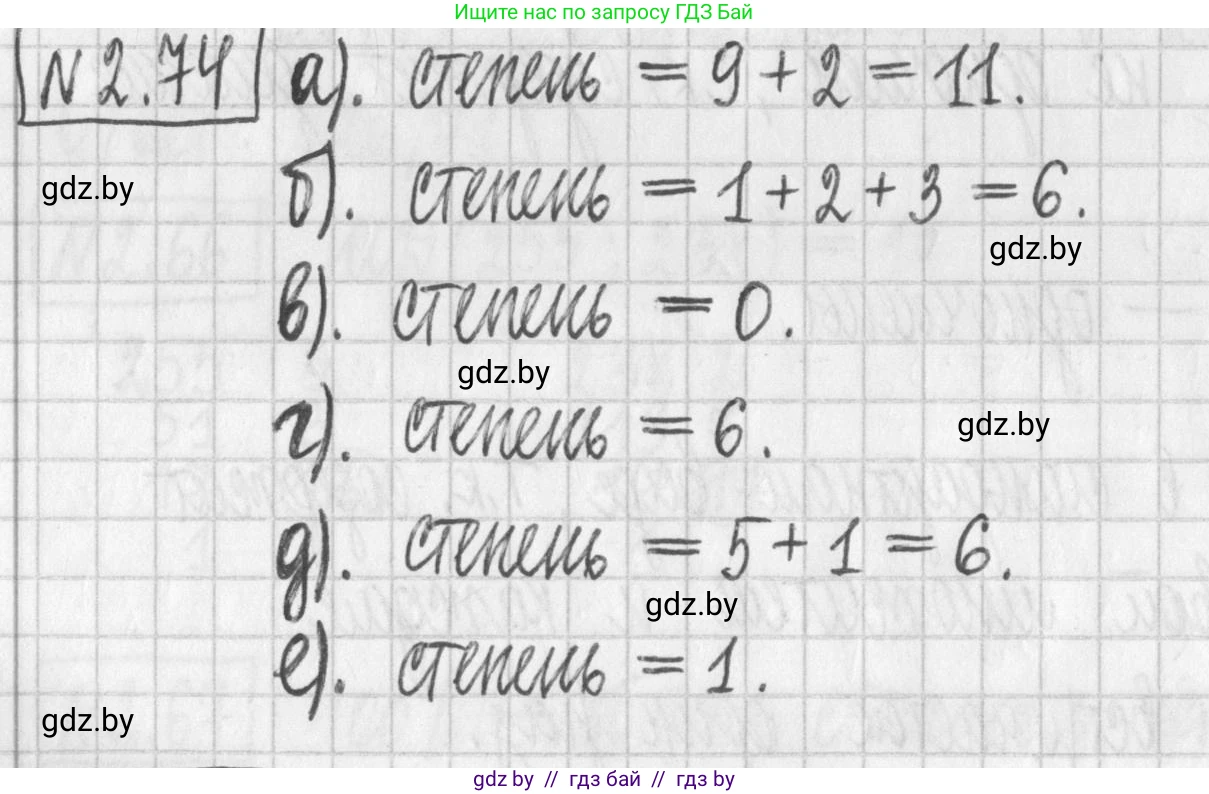 Ищите нас по запросу ГДЗ Бай
N 2.74 а). степень = 9 + 2 = 11.
gdz.by
б). степень = 1 + 2 + 3 = 6.
gdz.by
в). степень = 0.
gdz.by
г). степень = 6.
gdz.by
д). степень = 5 + 1 = 6.
gdz.by
е). степень = 1.
gdz.by
gdz by // гдз бай // гдз by